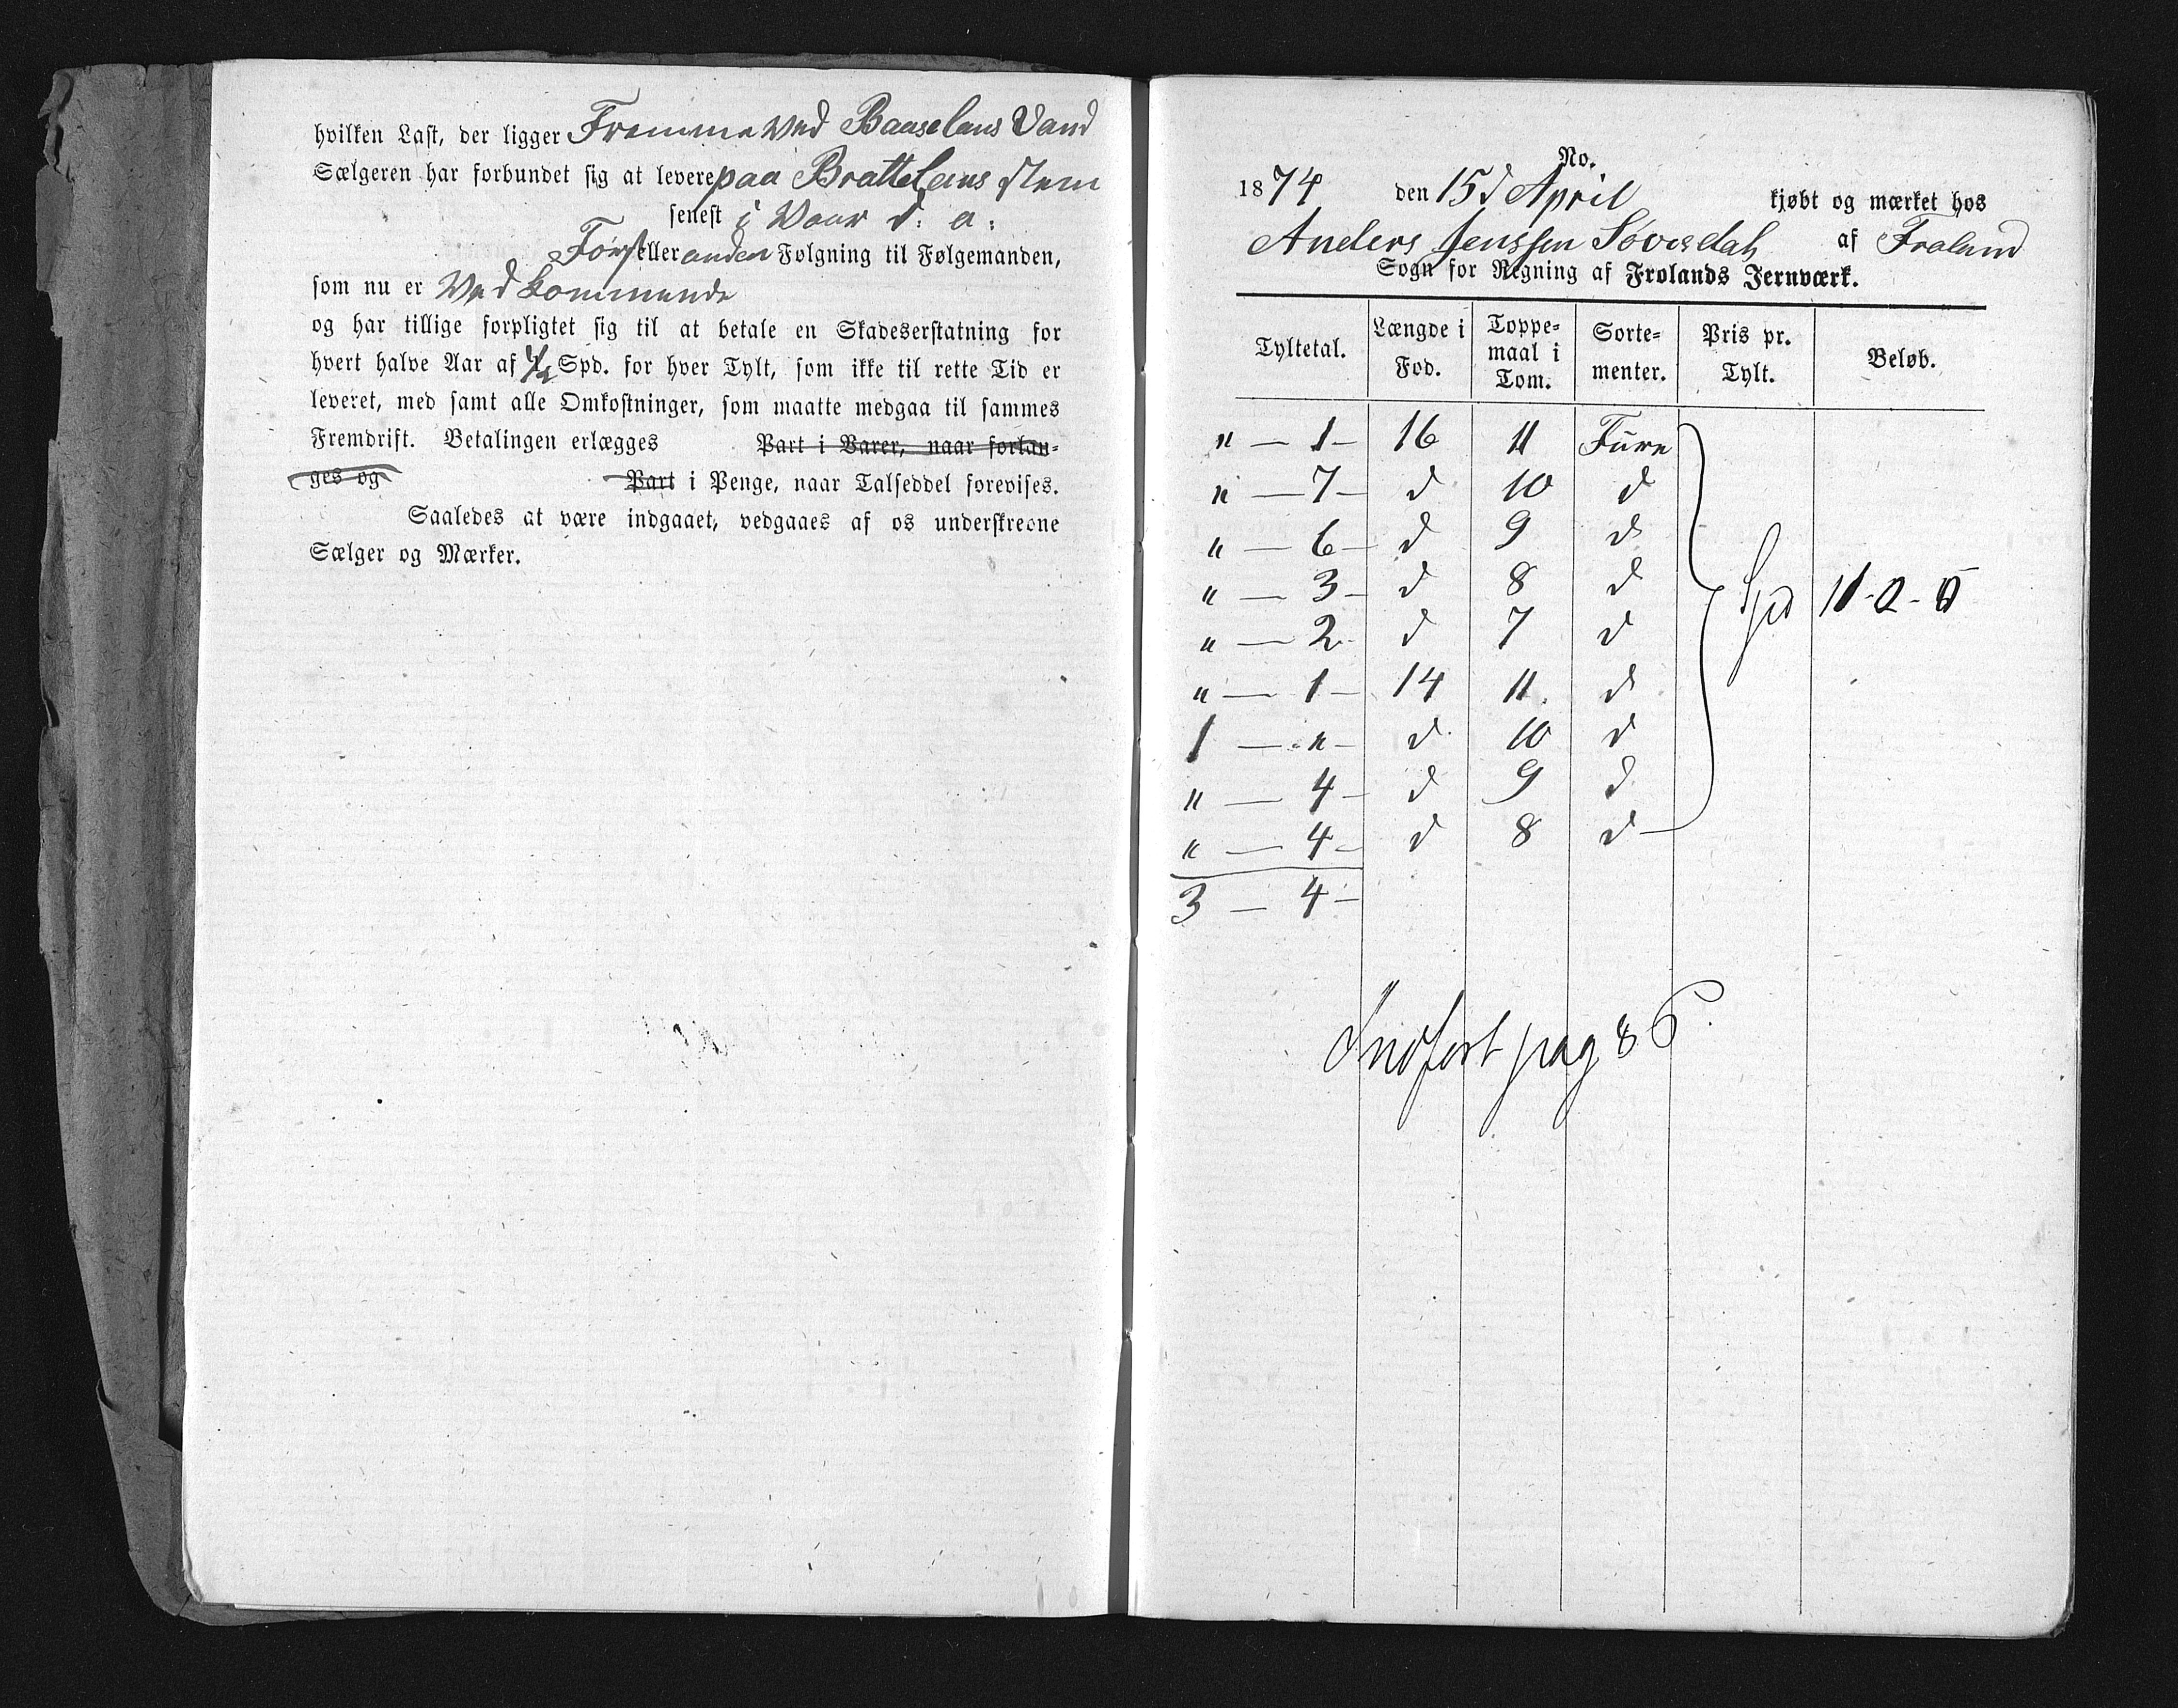 hvilken Last, der ligger Fremme ved Baaselans Vand
Sælgeren har forbundet sig at levere paa Brattelans Stem
senest i Vaar d. a:
Først eller anden Følgning til Følgemanden,
som nu er Vedkommende
og har tillige forpligtet sig til at betale en Skadeserstatning for
hvert halve Aar af 1/2 Spd. for hver Tylt, som ikke til rette Tid er
leveret, med samt alle Omkostninger, som maatte medgaa til sammes
Fremdrift. Betalingen erlægges Part i Varer, naar forlan-
ges og Part i Penge, naar Talseddel forevises.
Saaledes at være indgaaet, vedgaaes af os underskrevne
Sælger og Mærker.
No.
1874 den 15d April kjøbt og mærket hos
Anders Jenssen af Froland
Sogn for Regning af Frolands Jernværk.
Tyltetal. Længde i Fod. Toppe-maal i Tom. Sorte-menter. Pris pr. Tylt. Beløb.
" — 1 — 16 11 Furu
" — 7 — d 10 d
" — 6 — d 9 d
" — 3 — d 8 d
Spd 11-0-0
" — 2 - d 7 d
" — 1 — 14 11 d
1 — " — d 10 d
" — 4 — d 9 d
" — 4 — d 8 d
3 — 4 —
Indført pag 86.